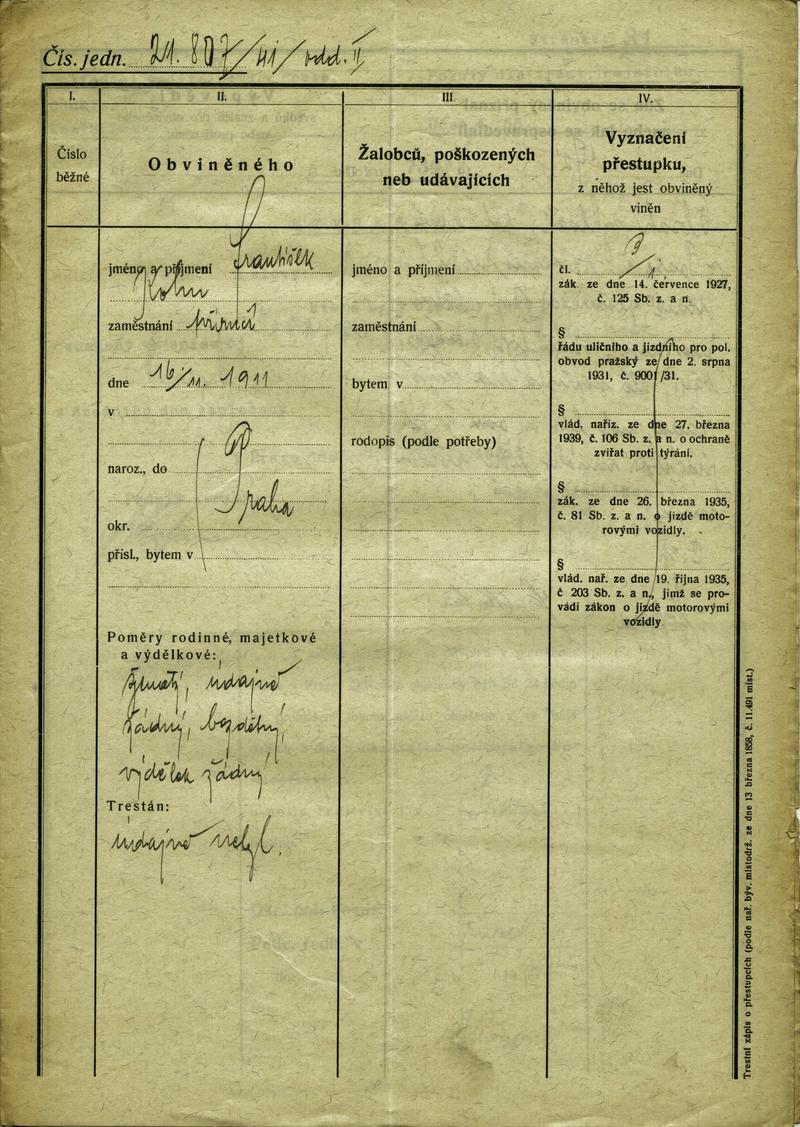 Čís. jedn. 21.807/41/odd. II
I.
Číslo
běžné
II.
Obviněného
jméno a příjmení František
zaměstnání
dne 16/11. 1911
v
naroz., do
Praha
okr.
přísl., bytem v
Poměry rodinné, majetkové
a výdělkové:
ženatý, údajně
řádný, bezdětný,
výdělek žádný
Trestán:
údajně nebyl.
III.
Žalobců, poškozených
neb udávajících
jméno a příjmení
zaměstnání
bytem v
rodopis (podle potřeby)
IV.
Vyznačení
přestupku,
z něhož jest obviněný
viněn
čl.
zák. ze dne 14. července 1927,
č. 125 Sb. z. a n.
§
řádu uličního a jízdního pro pol.
obvod pražský ze dne 2. srpna
1931, č. 900/31.
§
vlád. naříz. ze dne 27. března
1939, č. 106 Sb. z. a n. o ochraně
zvířat proti týrání.
§
zák. ze dne 26. března 1935,
č. 81 Sb. z. a n. o jízdě moto-
rovými vozidly.
§
vlád. nař. ze dne 19. října 1935,
č 203 Sb. z. a n., jimž se pro-
vádí zákon o jízdě motorovými
vozidly
Trestní zápis o přestupcích (podle nař. býv. místodrž. ze dne 13 března 1858, č. 11.491 míst.)